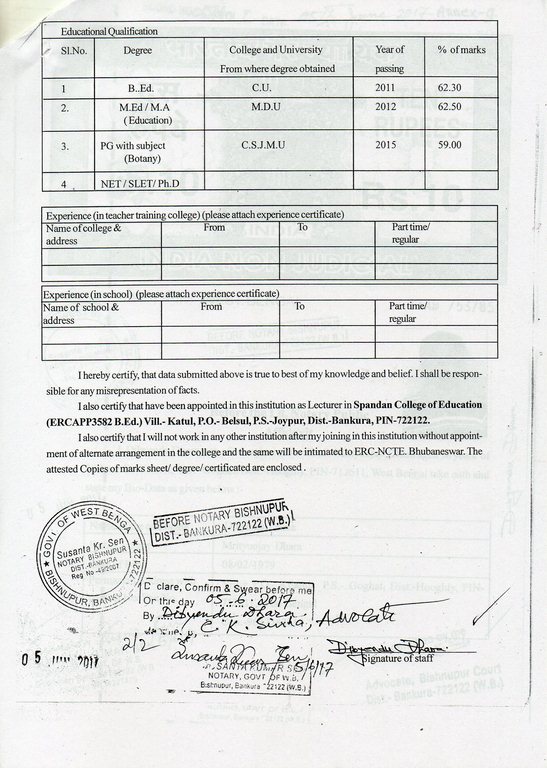 Educational Qualification
Sl.No. Degree College and University From where degree obtained Year of passing % of marks
1 B..Ed. C.U. 2011 62.30
2. M.Ed / M.A (Education) M.D.U 2012 62.50
3. PG with subject (Botany) C.S.J.M.U 2015 59.00
4 NET / SLET/ Ph.D
Experience (in teacher training college) (please attach experience certificate)
Name of college & address From To Part time/ regular
Experience (in school) (please attach experience certificate)
Name of school & address From To Part time/ regular
I hereby certify, that data submitted above is true to best of my knowledge and belief. I shall be respon-
sible for any misrepresentation of facts.
I also certify that have been appointed in this institution as Lecturer in Spandan College of Education
(ERCAPP3582 B.Ed.) Vill.- Katul, P.O.- Belsul, P.S.-Joypur, Dist.-Bankura, PIN-722122.
I also certify that I will not work in any other institution after my joining in this institution without appoint-
ment of alternate arrangement in the college and the same will be intimated to ERC-NCTE. Bhubaneswar. The
attested Copies of marks sheet/ degree/ certificated are enclosed .
GOVT. OF WEST BENGA
Susanta Kr. Sen
NOTARY BISHNUPUR
DIST.-BANKURA
Reg No.-49/2007
BISHNUPUR, BANKU 722122
BEFORE NOTARY BISHNUPUR
DIST.- BANKURA-722122 (W.B.)
D clare, Confirm & Swear before me
On this day 05..6..2017
By Dibyendu Dhara
C. K. Sinha, Advocate
2/2
05 JUN 2017
Susanta Kumar Sen 5/6/17
SANTA KUMAR S
NOTARY, GOVT OF W.B.
Bishnupur, Bankura 722122 (W.B.)
Dibyendu Dhara
Signature of staff